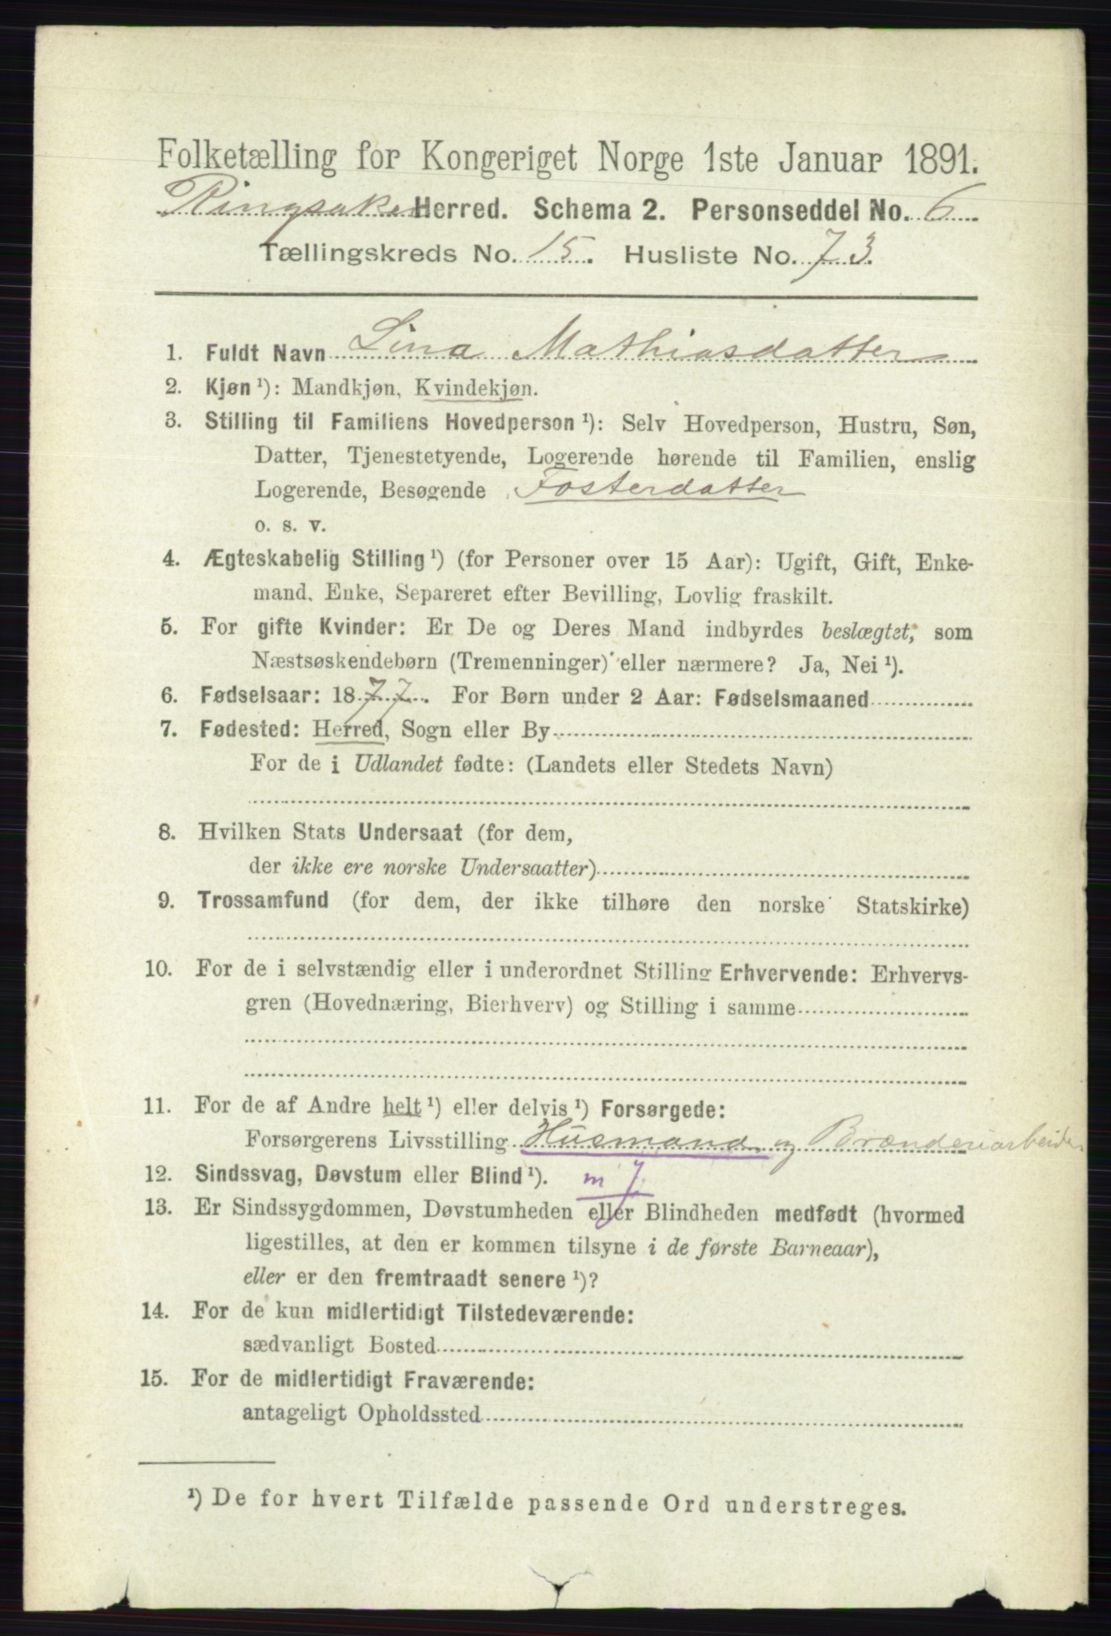 Folketælling for Kongeriget Norge 1ste Januar 1891.
Ringsaker Herred. Schema 2. Personseddel No. 6
Tællingskreds No. 15. Husliste No. 73.
1. Fuldt Navn Lina Mathiasdatter
2. Kjøn ¹): Mandkjøn, Kvindekjøn.
3. Stilling til Familiens Hovedperson ¹): Selv Hovedperson, Hustru, Søn,
Datter, Tjenestetyende, Logerende hørende til Familien, enslig
Logerende, Besøgende Fosterdatter
o. s. v.
4. Ægteskabelig Stilling ¹) (for Personer over 15 Aar): Ugift, Gift, Enke-
mand, Enke, Separeret efter Bevilling, Lovlig fraskilt.
5. For gifte Kvinder: Er De og Deres Mand indbyrdes beslægtet, som
Næstsøskendebørn (Tremenninger) eller nærmere? Ja, Nei ¹).
6. Fødselsaar: 1877. For Børn under 2 Aar: Fødselsmaaned
7. Fødested: Herred, Sogn eller By
For de i Udlandet fødte: (Landets eller Stedets Navn)
8. Hvilken Stats Undersaat (for dem,
der ikke ere norske Undersaatter)
9. Trossamfund (for dem, der ikke tilhøre den norske Statskirke)
10. For de i selvstændig eller i underordnet Stilling Erhvervende: Erhvervs-
gren (Hovednæring, Bierhverv) og Stilling i samme
11. For de af Andre helt ¹) eller delvis ¹) Forsørgede:
Forsørgerens Livsstilling Husmand og Brænderiarbeider
12. Sindssvag, Døvstum eller Blind ¹). m 7.
13. Er Sindssygdommen, Døvstumheden eller Blindheden medfødt (hvormed
ligestilles, at den er kommen tilsyne i de første Barneaar),
eller er den fremtraadt senere ¹)?
14. For de kun midlertidigt Tilstedeværende:
sædvanligt Bosted
15. For de midlertidigt Fraværende:
antageligt Opholdssted
¹) De for hvert Tilfælde passende Ord understreges.